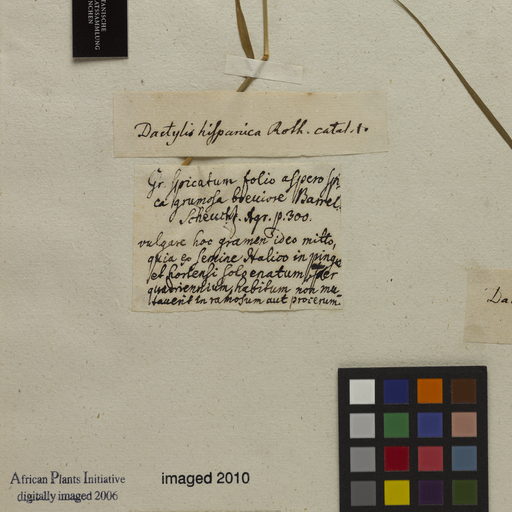 TANISCHE
TSSAMMLUNG
NCHEN
Dactylis hispanica Roth. catal. 1.
Gr. spicatum folio aspero spi-
ca grumosa breviore Barrel.
Scheuchz. Agr. p. 300.
vulgare hoc gramen ideo mitto,
quia eo semine Italico in pingui
et hortensi solo enatum per
quadriennium, habitum non mu-
taverit in ramosum aut procerum
Da
African Plants Initiative
digitally imaged 2006
imaged 2010